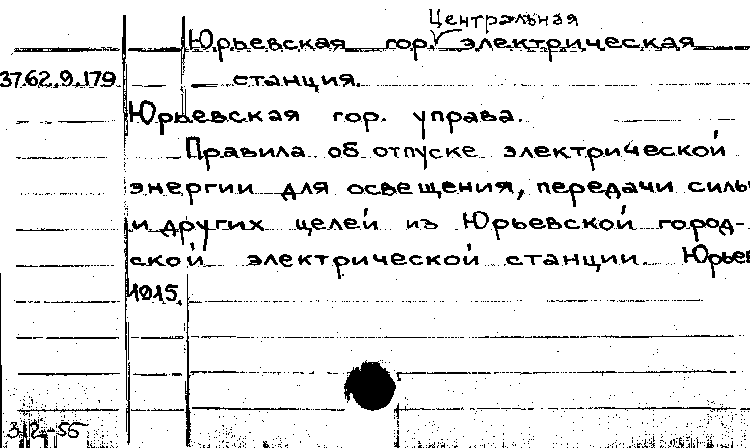 Центральная
Юрьевская гор. электрическая
3762.9.179 станция.
Юрьевская гор. управа.
Правила об отпуске электрической
энергии для освещения, передачи силы
и других целей из Юрьевской город-
ской электрической станции. Юрьев
1915.
312-56